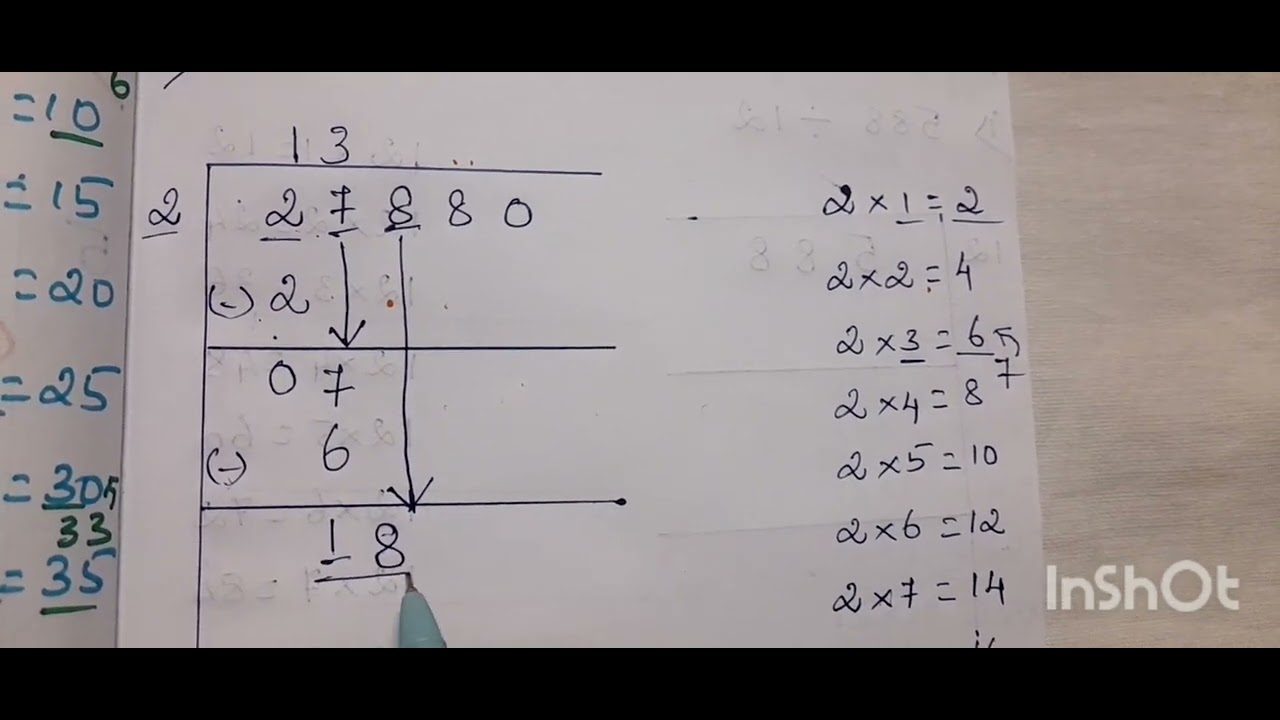 6
=10
=15
=20
=25
=305
33
=35
13
2 27880
(-) 2
07
(-) 6
18
2×1=2
2×2=4
2×3=65
7
2×4=8
2×5=10
2×6=12
2×7=14
InShOt